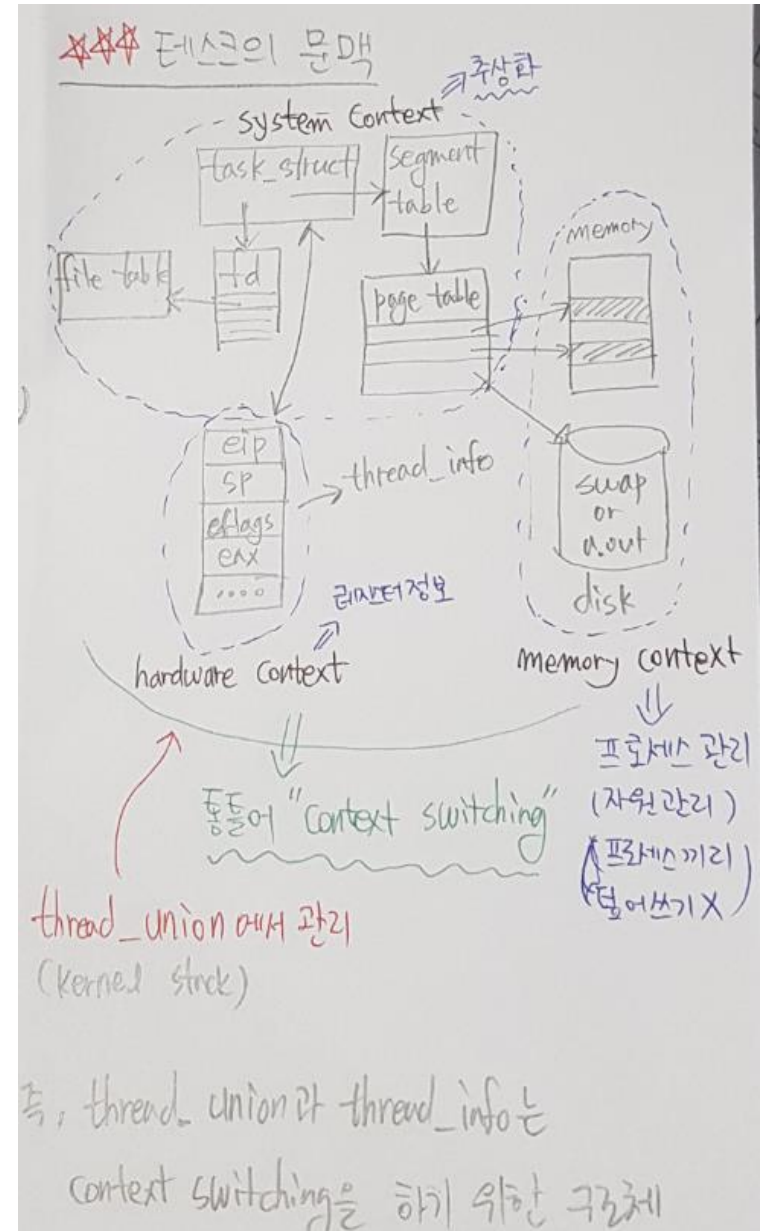 테스크의 문맥
추상화
system context
task_struct
segment
table
memory
file table
fd
page table
eip
sp
eflags
eax
....
thread_info
swap
or
a.out
disk
레지스터 정보
hardware context
memory context
통틀어 "context switching"
프로세스 관리
(자원관리)
(프로세스끼리
덮어쓰기 X)
thread_union 에서 관리
(kernel stack)
즉, thread_union과 thread_info는
context switching을 하기 위한 구조체